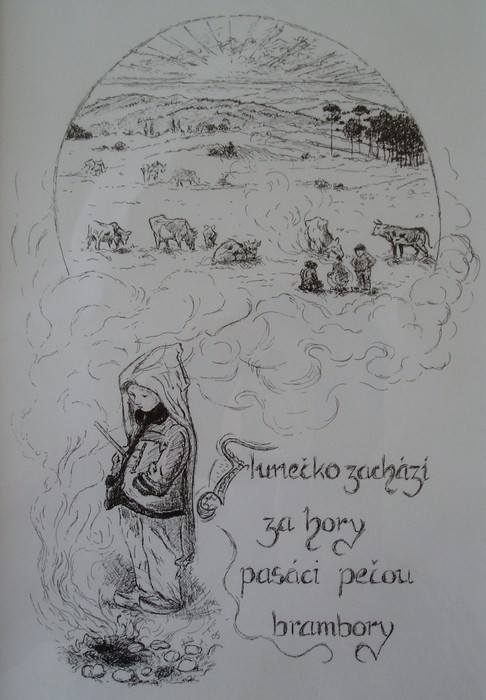 Slunečko zachází
za hory
pasáci pečou
brambory